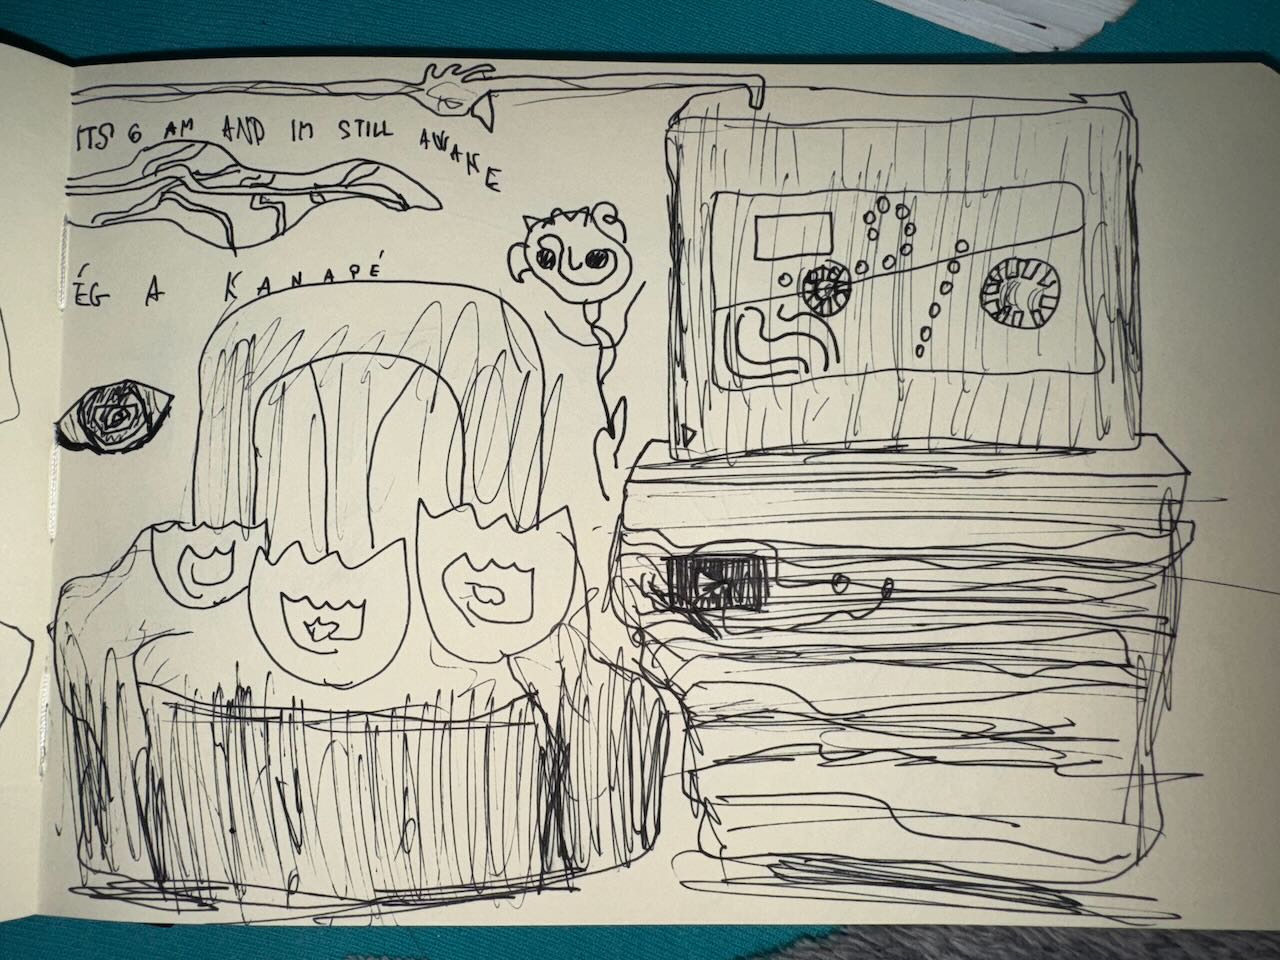 ITS 6 AM AND IM STILL AWAKE
ÉG A KANAPÉ